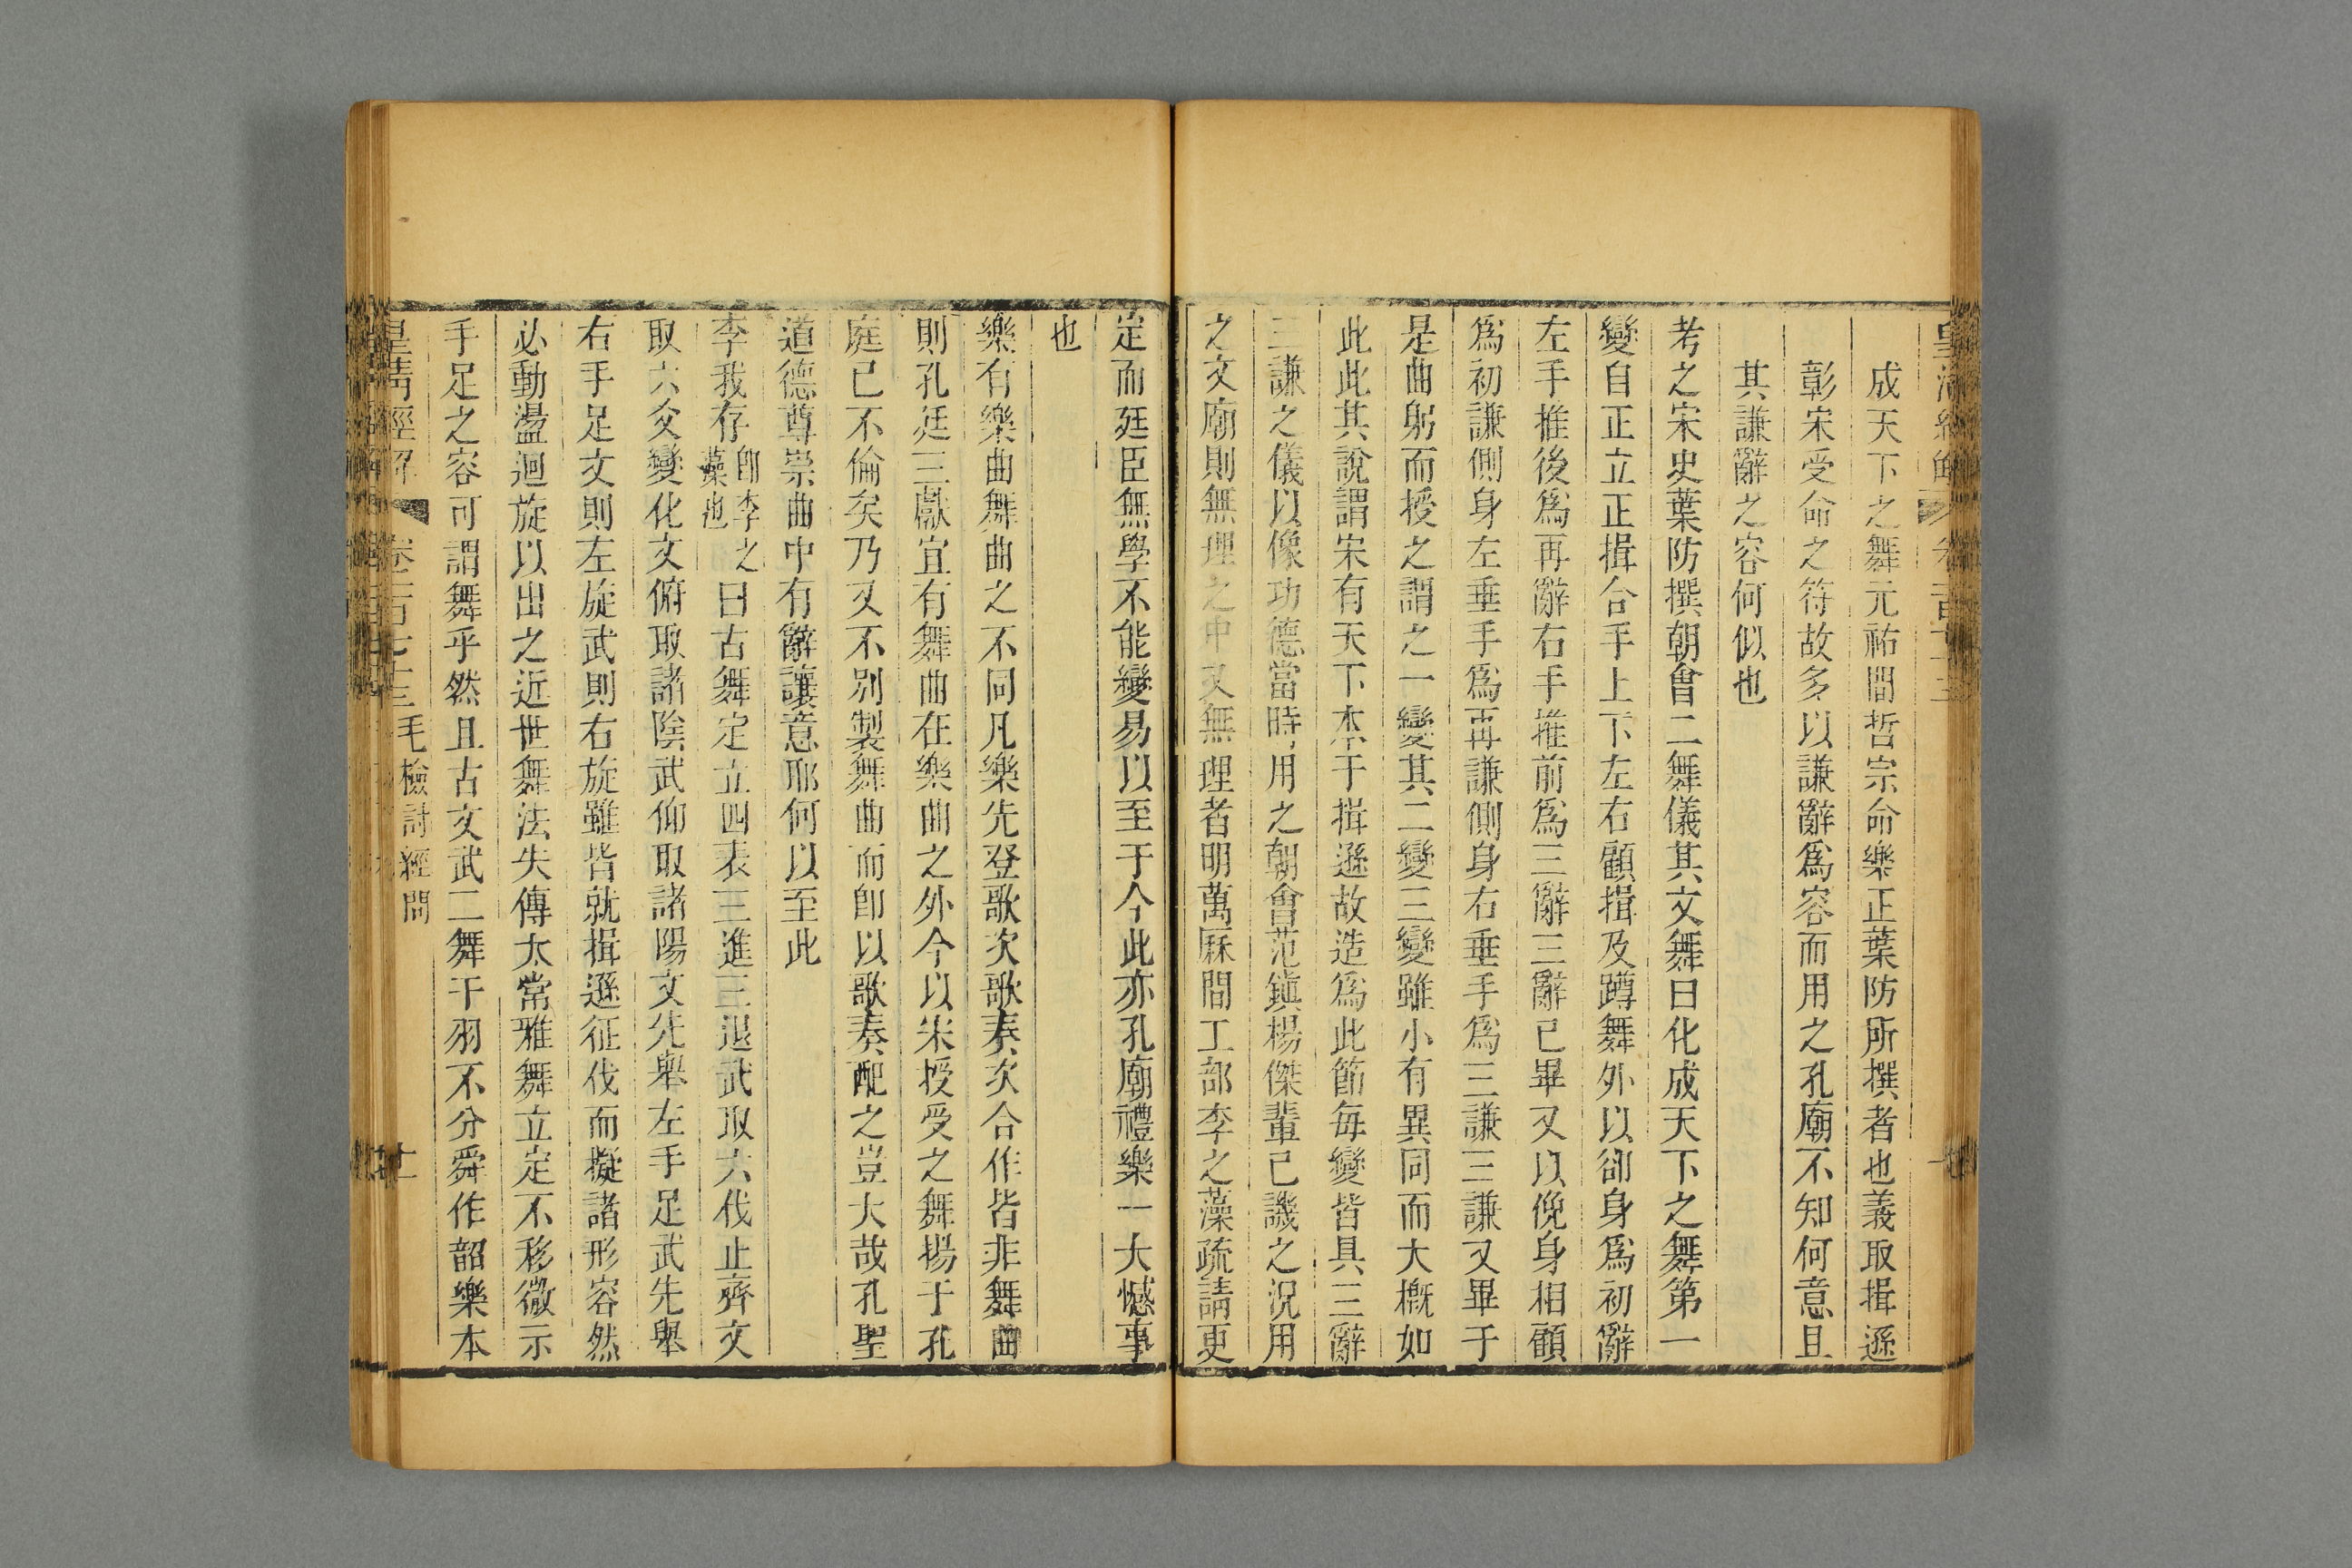 成天下之舞元祐間哲宗命樂正葉防所撰者也義取揖遜
彰宋受命之符故多以謙辭爲容而用之孔廟不知何意且
其謙辭之容何似也
考之宋史葉防撰朝會二舞儀其文舞曰化成天下之舞第一
變自正立正揖合手上下左右顧揖及蹲舞外以卻身爲初辭
左手推後爲再辭右手推前爲三辭三辭已畢又以俛身相顧
爲初謙側身左垂手爲再謙側身右垂手爲三謙三謙又畢于
是曲躬而授之謂之一變其二變三變雖小有異同而大槪如
此此其說謂宋有天下本于揖遜故造爲此節每變皆具三辭
三謙之儀以像功德當時用之朝會范鎭楊傑輩已譏之況用
之文廟則無理之中又無理者明萬厤間工部李之藻疏請更
定而廷臣無學不能變易以至于今此亦孔廟禮樂一大憾事
也
樂有樂曲舞曲之不同凡樂先登歌次歌奏次合作皆非舞曲
則孔廷三獻宜有舞曲在樂曲之外今以宋授受之舞揚于孔
庭已不倫矣乃又不別製舞曲而卽以歌奏配之豈大哉孔聖
道德尊崇曲中有辭讓意耶何以至此
李我存卽李之藻也曰古舞定立四表三進三退武取六伐止齊文
取六爻變化文俯取諸陰武仰取諸陽文先舉左手足武先舉
右手足文則左旋武則右旋雖皆就揖遜征伐而擬諸形容然
必動盪迴旋以出之近世舞法失傳太常雅舞立定不移微示
手足之容可謂舞乎然且古文武二舞干羽不分舜作韶樂本
皇淸經解 卷二百七十三 毛檢討經問 十一